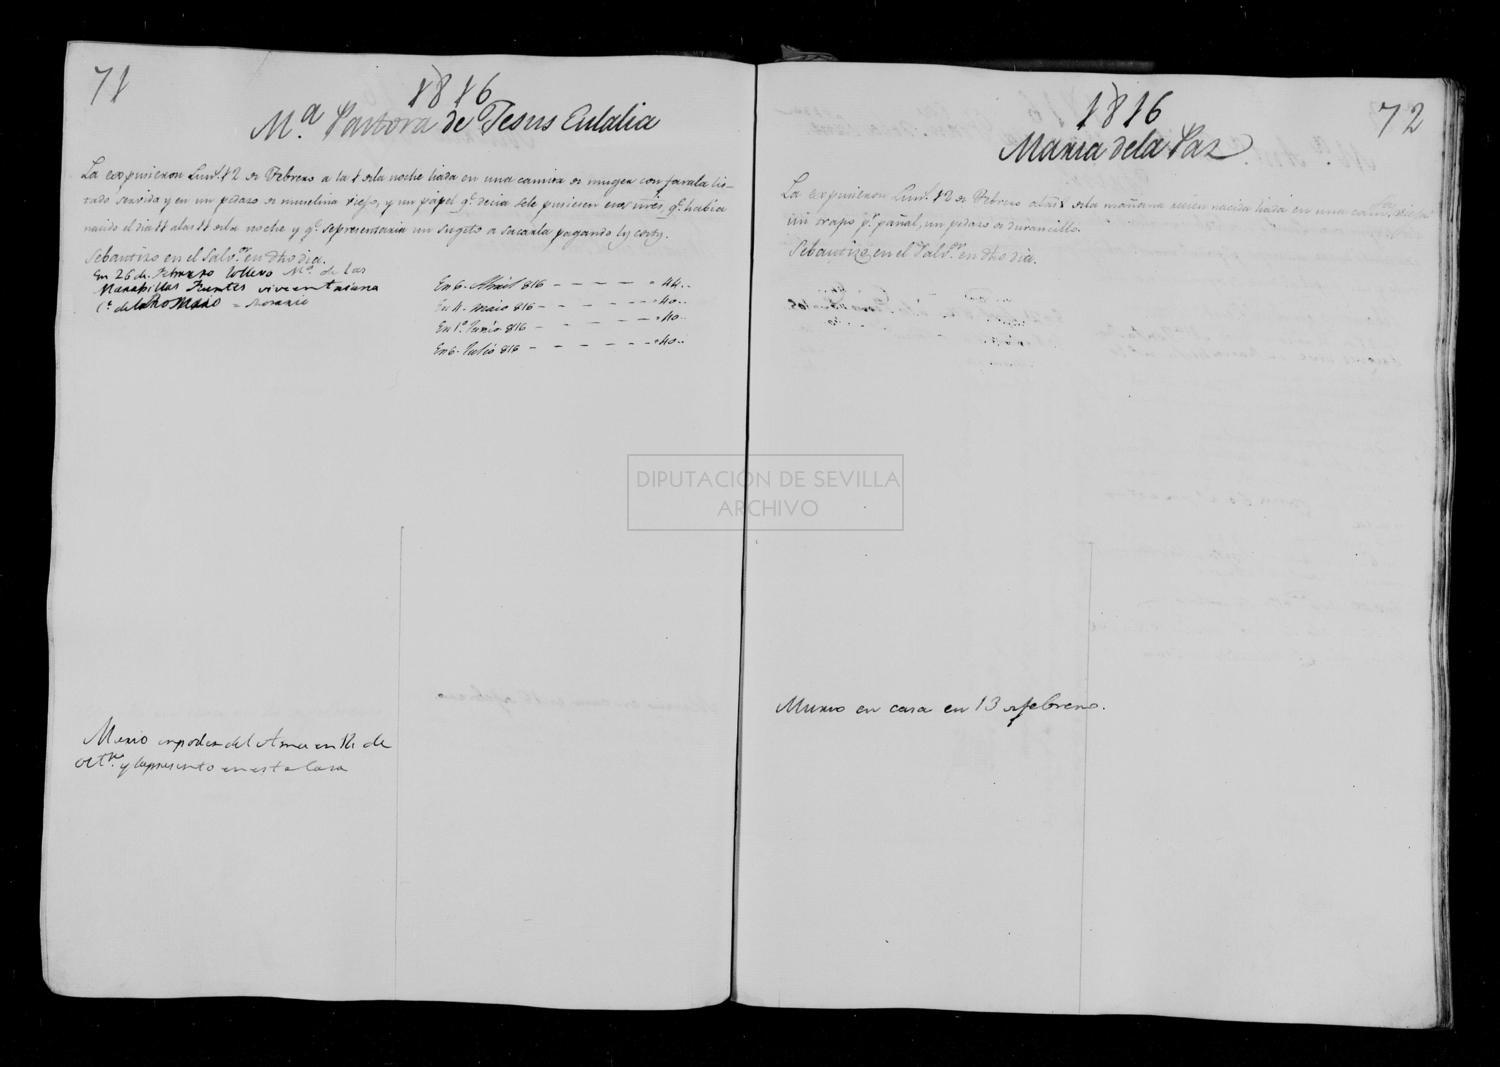 71
1816
M.ª Pastora de Jesus Eulalia
La expusieron Lun.s 12 de Febrero a la 1 dela noche liada en una camisa de muger con farala lis-
tado servida y en un pedazo de muselina viejo, y un papel q.e decia sele pusiesen esos nres, q.e habia
nacido el dia 11 alas 11 dela noche y q.e sepresentaria un Sugeto a sacarla pagando ls costs.
Sebautizo en el Salv.or en dho dia.
En 26 de Febrero lallevo M.ª de las
Marabillas Fuentes vive en triana
C.e dela = Rosario
En 6. Abril 816 - - - - - 44..
En 4. Maio 816 - - - - - 40..
En 1.º Junio 816 - - - - - 40..
En 6. Julio 816 - - - - - 40..
Murio enpoder del Ama en 12 de
oct.re y lapresento en esta Casa
72
1816
Maria dela Paz
La expusieron Lun.s 12 de Febrero alas dela mañana recien nacida liada en una camisa vieja
un trapo p.r pañal, un pedazo de durancillo.
Sebautizo en el Salv.or en dho dia.
Murio en casa en 13 de febrero.
DIPUTACIÓN DE SEVILLA
ARCHIVO